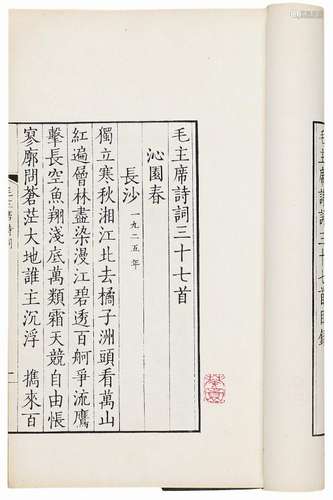 毛主席詩詞三十七首目錄
毛主席詩詞三十七首
沁園春
長沙 一九二五年
獨立寒秋湘江北去橘子洲頭看萬山
紅遍層林盡染漫江碧透百舸爭流鷹
擊長空魚翔淺底萬類霜天競自由悵
寥廓問蒼茫大地誰主沉浮 攜來百
毛主席詩詞 一